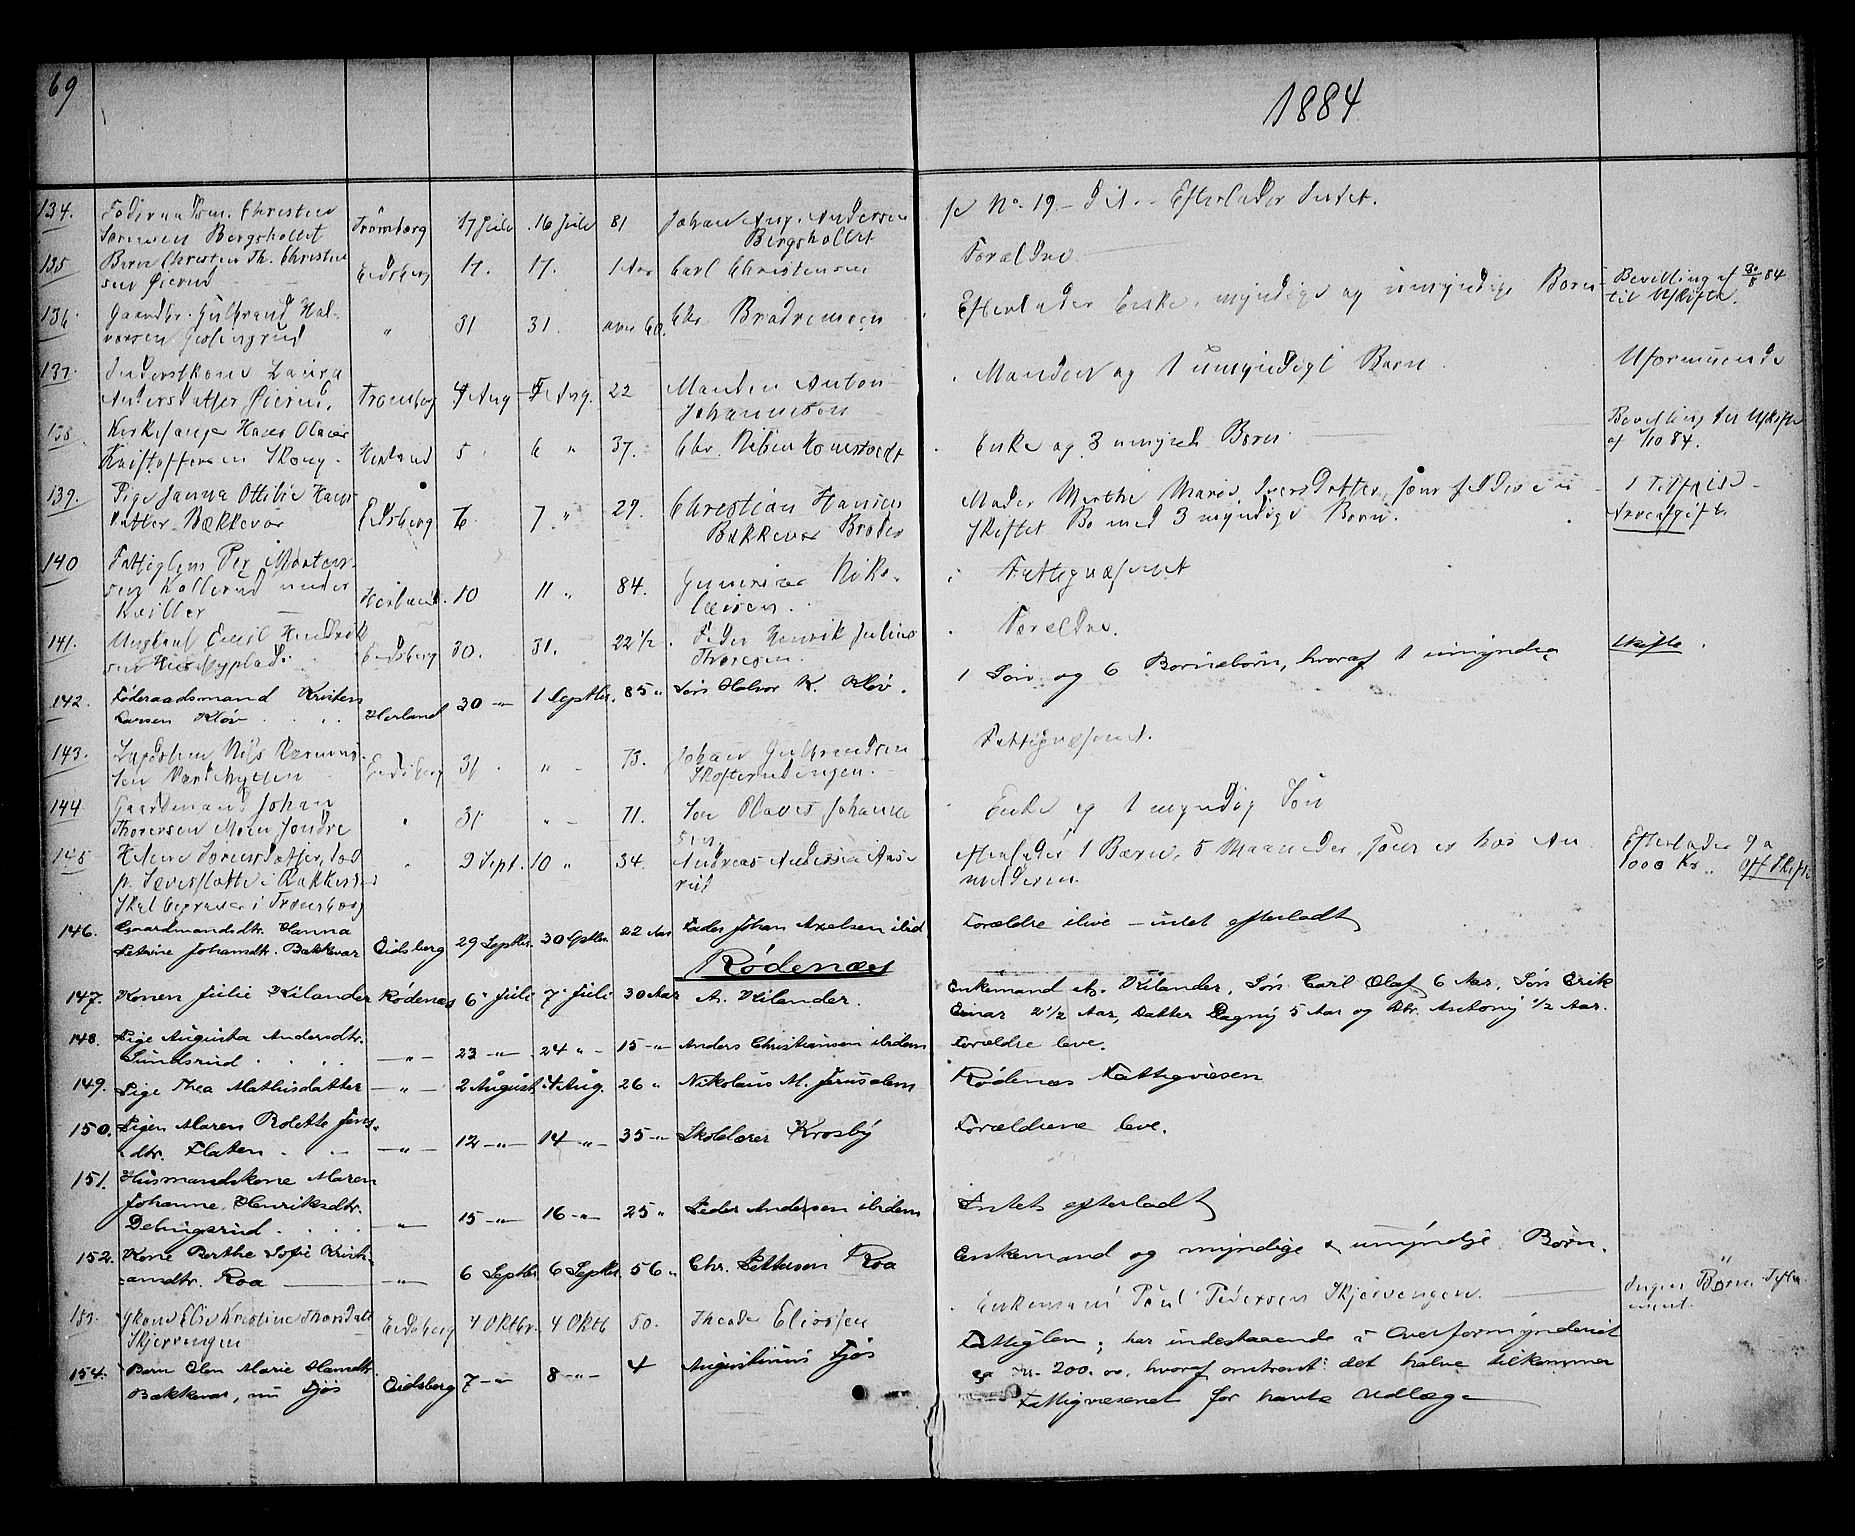 69
1884
134. Føderaadsm. Christen Trømborg 17 Juli 16 Juli 81 Johan Aug. Andersen No 19 Efterlader Intet.
Sørensen Bergsholtet Bergsholtet
135 Barn Christen Th. Christen Eidsberg 17. 17. 1 Aar Carl Christensen Forældre
sen Øierud
136 Gaardbr. Gulbrand Hal- " 31 31. over 60. Chr. Brødremoen Efterlader Enke, myndige og umyndige Børn Bevilling af 30/8 84
vorsen til Uskifte.
137. Inderstkone Laura Trømborg 4 Aug 5 Aug. 22 Manden Anton Manden og 1 umyndigt Barn Uformuende
Andersdatter Øierud. Johannesen
138. Kirkesanger Hans Olaves Herland 5 6 " 37. Chr. Enke og 3 umynd. Børn Bevilling til Uskifte
Kristoffersen Skoug af 1/10 84.
139. Pige Janna Ottilie Hans Eidsberg 6 7 " 29. Christian Hansen Moder Marthe Marie Iversdatter, som sidder i u
datter Bækkevar Bækkevar Broder skiftet Bo med 3 myndige Børn. Arveafgift
140 Fattiglem Per Mortens- Herland. 10 11 " 84. Niko- Fattigvæsenet
sen Kollerud under laisen.
141. Ungkarl Emil Hendrik Eidsberg 30. 31. 22 1/2 Fader Henrik Julius Forældre.
sen Thoresen.
142. Føderaadsmand Kristen Herland 30 -"- 1 Septbr. 85 " Søn Halvor K. Kløv. 1 Søn og 6 Børnebørn, hvoraf 1 umyndig Skifte.
Larsen Kløv
143. Lægdslem Nils Eidsberg 31 " - 73. Johan Gulbrandsen Fattigvæsenet.
sen
144 Gaardmand Johan " 31 " - 71. Søn Olaves Johanne Enke og 1 myndig Søn
Thoresen Moen Søndre sen.
145 Helene Sørensdatter, død " 9 Sept. 10 " 34. Andreas Andersen Aase efterlader 1 Barn, 5 Maaneder, som er hos An Efterlader ca
p. i Rakkestad rud melderen. 1000 Kr. Off Skifte
Skal begraves i Trømborg
146. Gaardmandsdtr. Hanna Eidsberg 29 Septbr. 30 Sptbr. 22 Aar Fader Johan Axelsen ibid Forældre ilive — intet efterladt
Petrine Johansdtr. Bækkevar
Rødenæs
147. Konen Julie Kilander Rødenæs 6 Juli 7 Juli 30 Aar A. Kilander. Enkemand A. Kilander, Søn Carl Olaf 6 Aar, Søn Erik
Einar 2 1/2 Aar, Datter Dagny 5 Aar og Dtr. Antony 1/2 Aar.
148. Pige Augusta Andersdtr. -"- 23 -"- 24 " - 15 -"- Anders Christiansen ibidem Forældre leve.
Sundsrud
149. Pige Thea Mathisdatter -"- 2 August 4 Aug. 26 " Nikolaus M. Jerusalem Rødenæs Fattigvæsen
150. Pigen Maren Rolette Jens- -"- 12 -"- 14 -"- 35 -"- Skolelærer Krosby Forældrene leve.
dtr. Flaten
151. Husmandskone Maren
Johanne Henriksdtr. -"- 15 -"- 16 -"- 25 " Peder Andersen ibidem Intet efterladt
Delingsrud
152. Kone Berthe Sofie Kristi- -"- 6 Septbr. 6 Septbr. 56 " Chr. Pettersen Roa Enkemand og myndige & umyndige Børn.
ansdtr. Roa
153. Gkone Elie Kristine Thorsdatt Eidsberg 4 Oktbr. 4 Oktb 50. Theodor Eliassen Enkemand Poul Pedersen Skjervengen. Ingen Børn. Testa
Skjervengen ment.
154. Barn Elen Marie Hansdtr. Eidsberg 7 -"- 8 -"- 4 Augustinus Fjøs Fattiglem; har indestaaende i Overformynderiet
Bækkevar, nu Fjøs ca 200.00, hvoraf omtrent det halve tilkommer
Fattigvæsenet for havte Udlæg